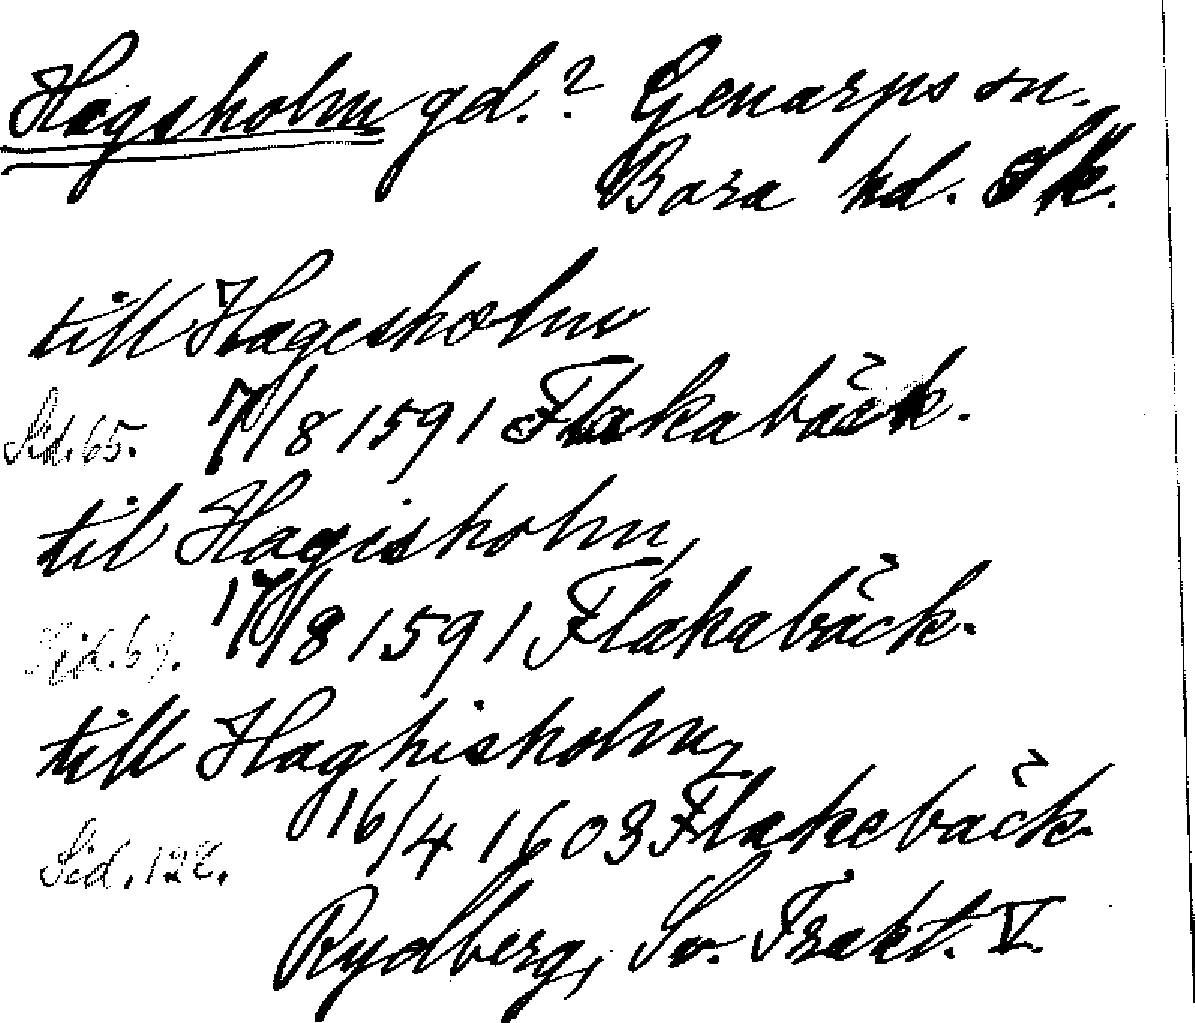 Hagsholm gd.? Genarps sn.
Bara hd. Sk.
till Hagesholm
Sid. 65. 7/8 1591 Flakabäck.
til Hagisholm,
Sid. 69. 17/8 1591 Flakabäck.
till Haghisholm,
Sid. 128. 16/4 1603 Flakebäck.
Rydberg, Sv. Trakt. V.